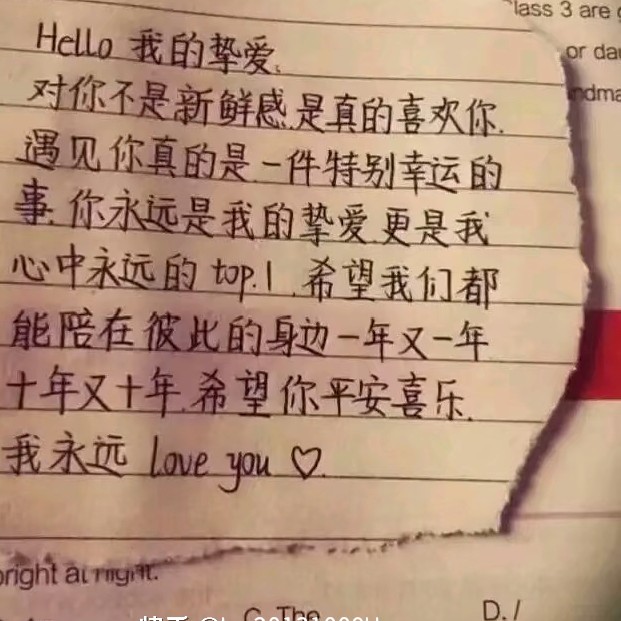 lass 3 are
or dau
ndma
Hello 我的挚爱.
对你不是新鲜感.是真的喜欢你.
遇见你真的是一件特别幸运的
事.你永远是我的挚爱.更是我
心中永远的 top.1.希望我们都
能陪在彼此的身边一年又一年
十年又十年.希望你平安喜乐.
我永远 love you ♡.
right at night.
C. The
D. I